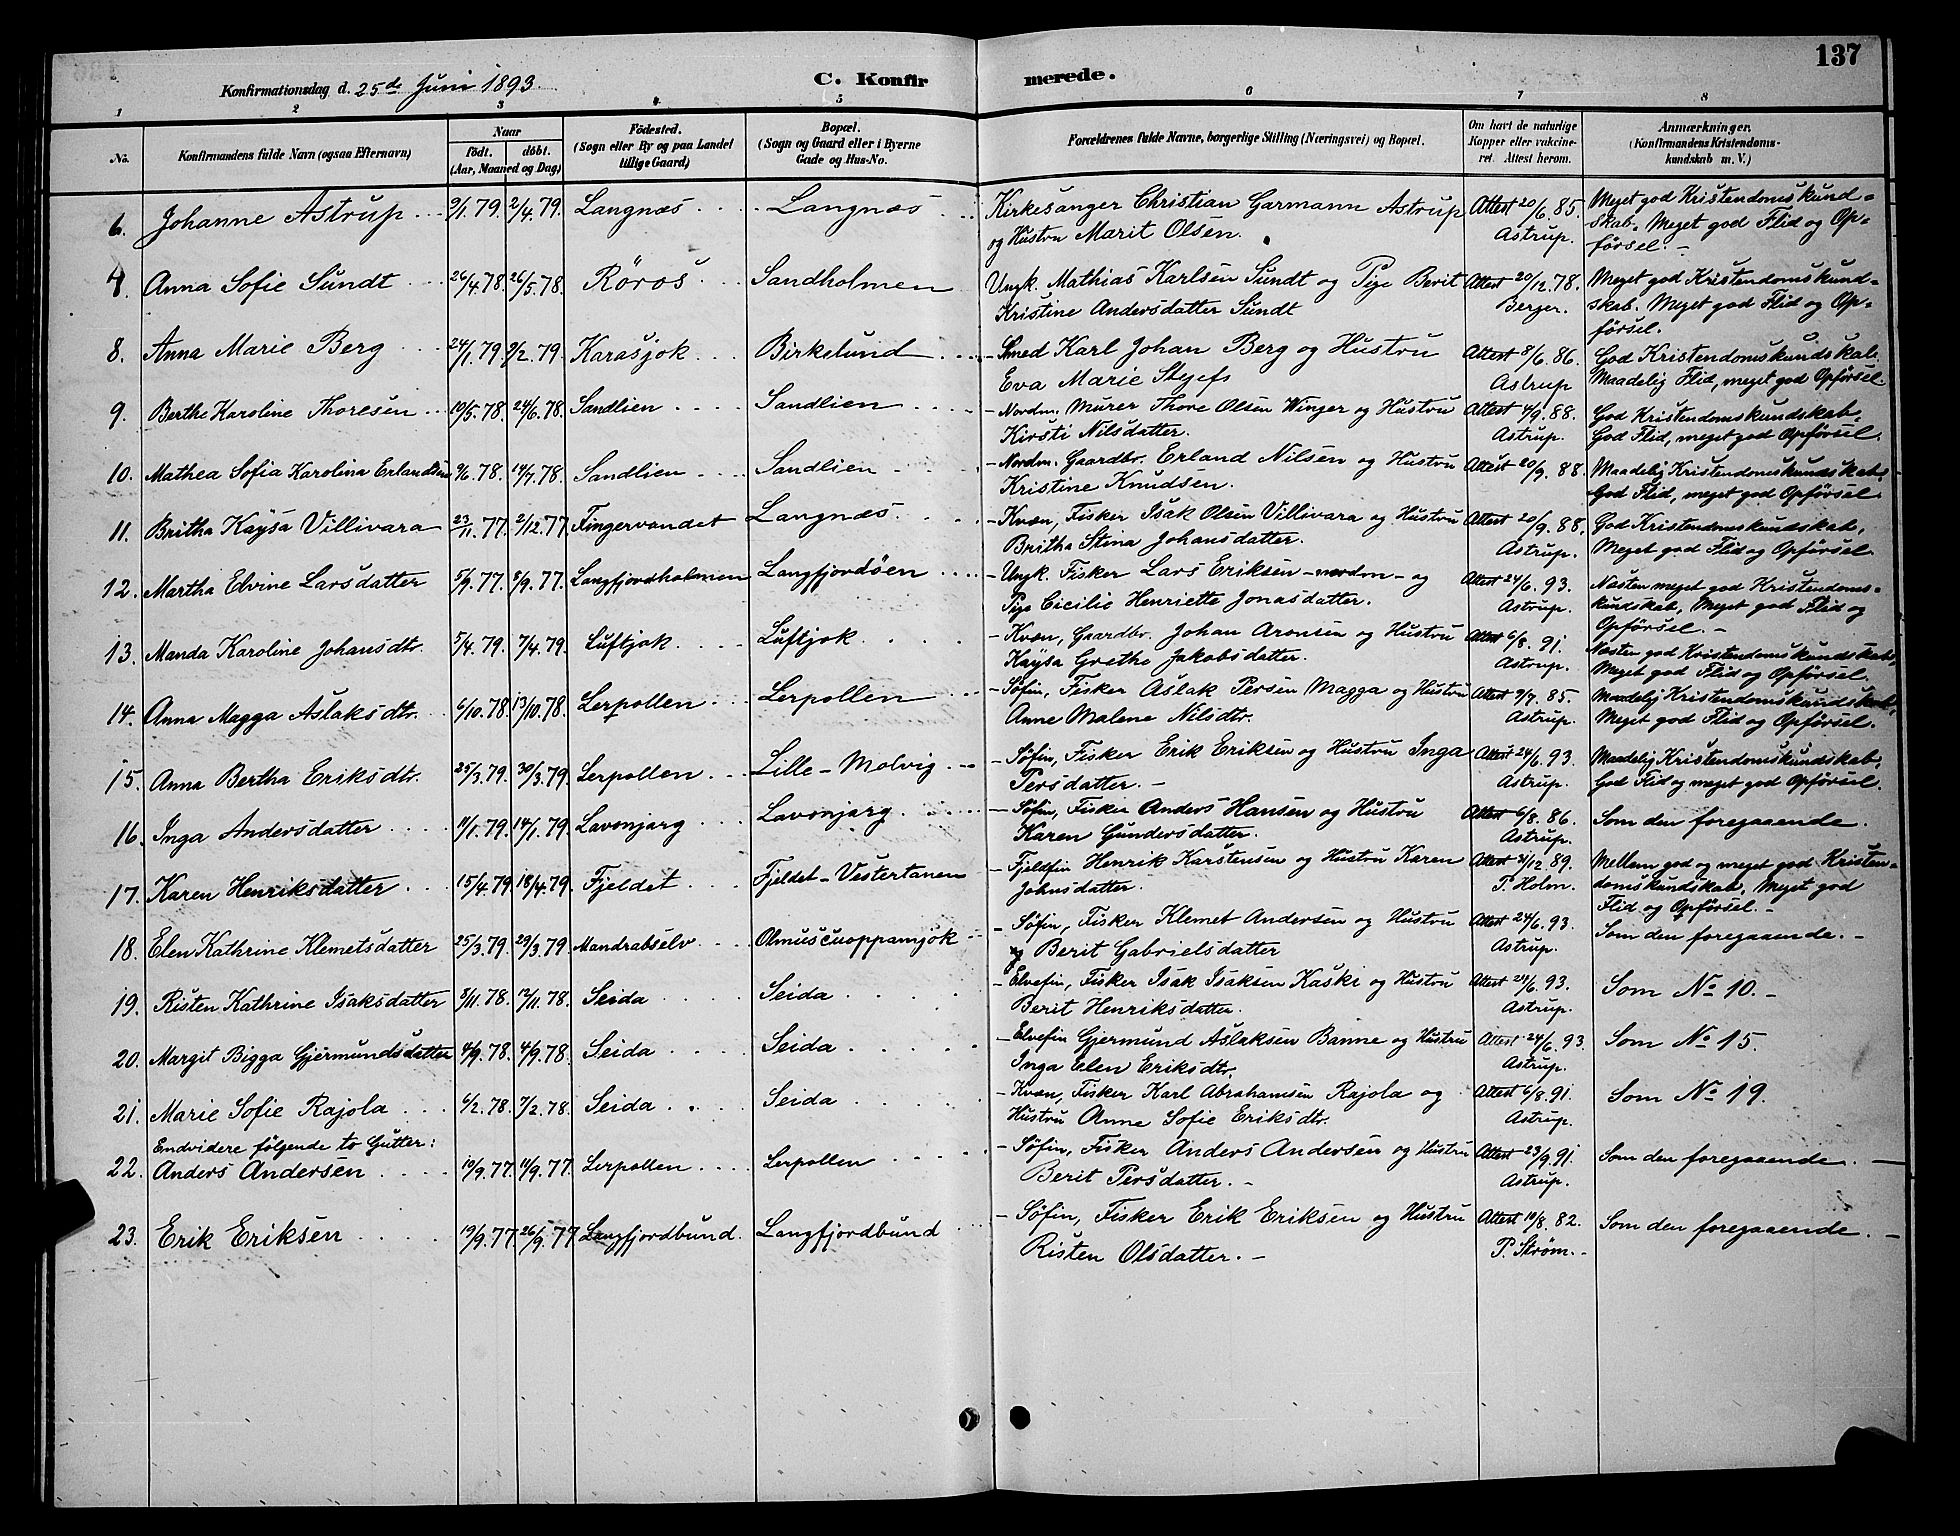 137
Konfirmationsdag d. 25de Juni 1893. C. Konfirmerede.
1 2 3 4 5 6 7 8
No. Konfirmandens fulde Navn (ogsaa Efternavn) Naar født. døbt. (Aar, Maaned og Dag) Fødested. (Sogn eller By og paa Landet tillige Gaard) Bopæl. (Sogn og Gaard eller i Byerne Gade og Hus-No. Forældrenes fulde Navne, borgerlige Stilling (Næringsvei) og Bopæl. Om havt de naturlige Kopper eller vakcineret. Attest herom. Anmærkninger. (Konfirmandens Kristendomskundskab m. V.)
6. Johanne Astrup 2/1.79. 2/4.79. Langnæs Langnæs Kirkesanger Christian Garmann Astrup Attest 20/6.85. Meget god Kristendomskund=
og Hustru Marit Olsen. Astrup. skab. Meget god Flid og Op=
førsel. –
7. Anna Sofie Sundt 26/4.78. 26/5.78. Röros Sandholmen Ungk. Mathias Karlsen Sundt og Pige Berit Attest 20/12.78. Meget god Kristendomskund=
Kristine Andersdatter Sundt Berger. skab. Meget god Flid og Op=
førsel.
8. Anna Marie Berg 24/1.79. 9/2.79. Karasjok Birkelund – Smed Karl Johan Berg og Hustru Attest 8/6.86. God Kristendomskundskab.
Eva Marie Stjefs Astrup Maadelig Flid, meget god Opførsel.
9. Berthe Karoline Thoresen 10/5.78. 24/6.78. Sandlien Sandlien – Nordm. Murer Thore Olsen Winger og Hustru Attest 4/9.88. God Kristendomskundskab,
Kirsti Nilsdatter. Astrup. God Flid, meget god Opførsel.
10. Mathea Sofia Karolina Erlandsen 9/6.78. 14/7.78. Sandlien Sandlien – Nordm. Gaardbr. Erland Nilsen og Hustru Attest 20/9.88. Maadelig Kristendomskundskab,
Kristine Knudsen. God Flid, meget god Opførsel.
11. Britha Kaysa Villivara 23/11.77. 2/12.77. Fingervandet Langnæs – Kvæn, Fisker Isak Olsen Villivara og Hustru Attest 20/9.88. God Kristendomskundskab,
Britha Stina Johansdatter. Astrup. Meget god Flid og Opførsel.
12. Martha Elvine Larsdatter 5/9.77. 8/9.77. Langfjordholmen Langfjordöen – Ungk. Fisker Lars Eriksen – nordm – og Attest 24/6.93. Næsten meget god Kristendoms=
Pige Cicilie Henriette Jonasdatter. Astrup. kundskab, Meget god Flid og
Opførsel. –
13. Manda Karoline Johansdtr. 5/4.79. 7/4.79. Luftjok Luftjok – Kvæn, Gaardbr. Johan Aronsen og Hustru Attest 6/8.91. Næsten god Kristendomskundskab,
Kaysa Grethe Jakobsdatter. Astrup. Meget god Flid og Opførsel.
14. Anna Magga Aslaksdtr. 6/10.78. 13/10.78. Lerpollen Lerpollen – Søfin, Fisker Aslak Persen Magga og Hustru Attest 9/7.85. Maadelig Kristendomskundskab,
Anne Malene Nilsdtr. Astrup. Meget god Flid og Opførsel.
15. Anna Bertha Eriksdtr. 25/3.79. 30/3.79. Lerpollen Lille-Molvig – Søfin, Fisker Erik Eriksen og Hustru Inga Attest 24/6.93. Maadelig Kristendomskundskab,
Persdatter. – Astrup. God Flid og meget god Opførsel.
16. Inga Andersdatter 11/1.79. 14/1.79. Lavonjarg Lavonjarg – Søfin, Fisker Anders Hansen og Hustru Attest 6/8.86. Som den foregaaende.
Karen Gundersdatter. Astrup.
17. Karen Henriksdatter 15/4.79. 18/4.79. Fjeldet Fjeldet-Vestertanen – Fjeldfin Henrik Karstensen og Hustru Karen Attest 31/12.89. Mellem god og meget god Kristen=
Johnsdatter. P. Holm. domskundskab. Meget god
Flid og Opførsel. –
18. Elen Kathrine Klemetsdatter 25/3.79. 29/3.79. Mandrabselv Olmuscuoppamjok – Søfin, Fisker Klemet Andersen og Hustru Attest 24/6.93. Som den foregaaende. –
Berit Gabrielsdatter Astrup.
19. Risten Kathrine Isaksdatter 8/11.78. 12/11.78. Seida Seida – Elvefin, Fisker Isak Isaksen Kaski og Hustru Attest 24/6.93. Som No 10. –
Berit Henriksdatter. Astrup.
20. Margit Bigga Gjermundsdatter 4/9.78. 4/9.78. Seida Seida – Elvefin Gjermund Aslaksen Banne og Hustru Attest 24/6.93. Som No 15.
Inga Elen Eriksdtr. Astrup.
21. Marie Sofie Rajola 6/2.78. 7/2.78. Seida Seida – Kvæn, Fisker Karl Abrahamsen Rajola og Attest 6/8.91. Som No 19.
Hustru Anne Sofie Eriksdtr. Astrup.
Endvidere følgende to Gutter:
22. Anders Andersen 10/9.77. 11/9.77. Lerpollen Lerpollen – Søfin, Fisker Anders Andersen og Hustru Attest 23/9.91. Som den foregaaende. –
Berit Persdatter. – Astrup.
23. Erik Eriksen 19/9.77. 26/9.77. Langfjordbund. Langfjordbund – Søfin, Fisker Erik Eriksen og Hustru Attest 10/8.82. Som den foregaaende. –
Risten Olsdatter. – P. Strøm. –